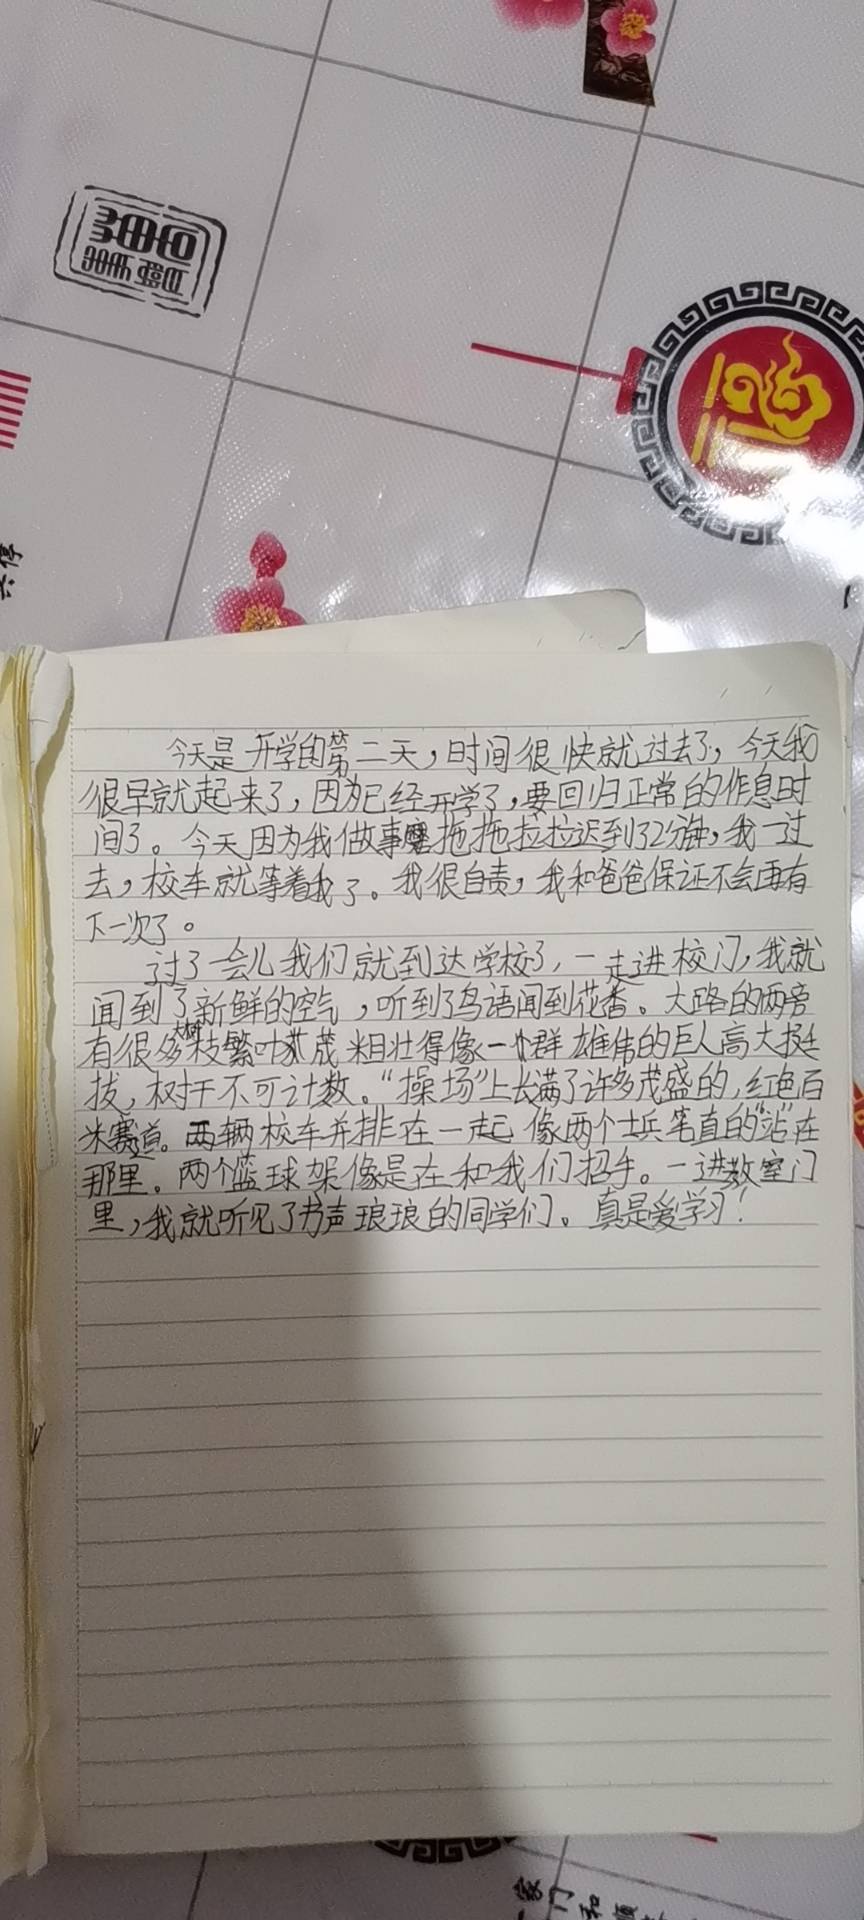 今天是开学的第二天，时间很快就过去了，今天我
很早就起来了，因为已经开学了，要回归正常的作息时
间了。今天因为我做事拖拖拉拉迟到了2分钟，我一过
去，校车就等着我了。我很自责，我和爸爸保证不会再有
下一次了。
过了一会儿我们就到达学校了，一走进校门，我就
闻到了新鲜的空气，听到了鸟语闻到花香。大路的两旁
有很多大树枝繁叶茂粗壮得像一个群雄伟的巨人高大挺
拔，树干不可计数。“操场”上长满了许多茂盛的，红色百
米赛道。两辆校车并排在一起像两个士兵笔直的“站”在
那里。两个篮球架像是在和我们招手。一进教室门
里，我就听见了书声琅琅的同学们。真是爱学习！
家门和顺